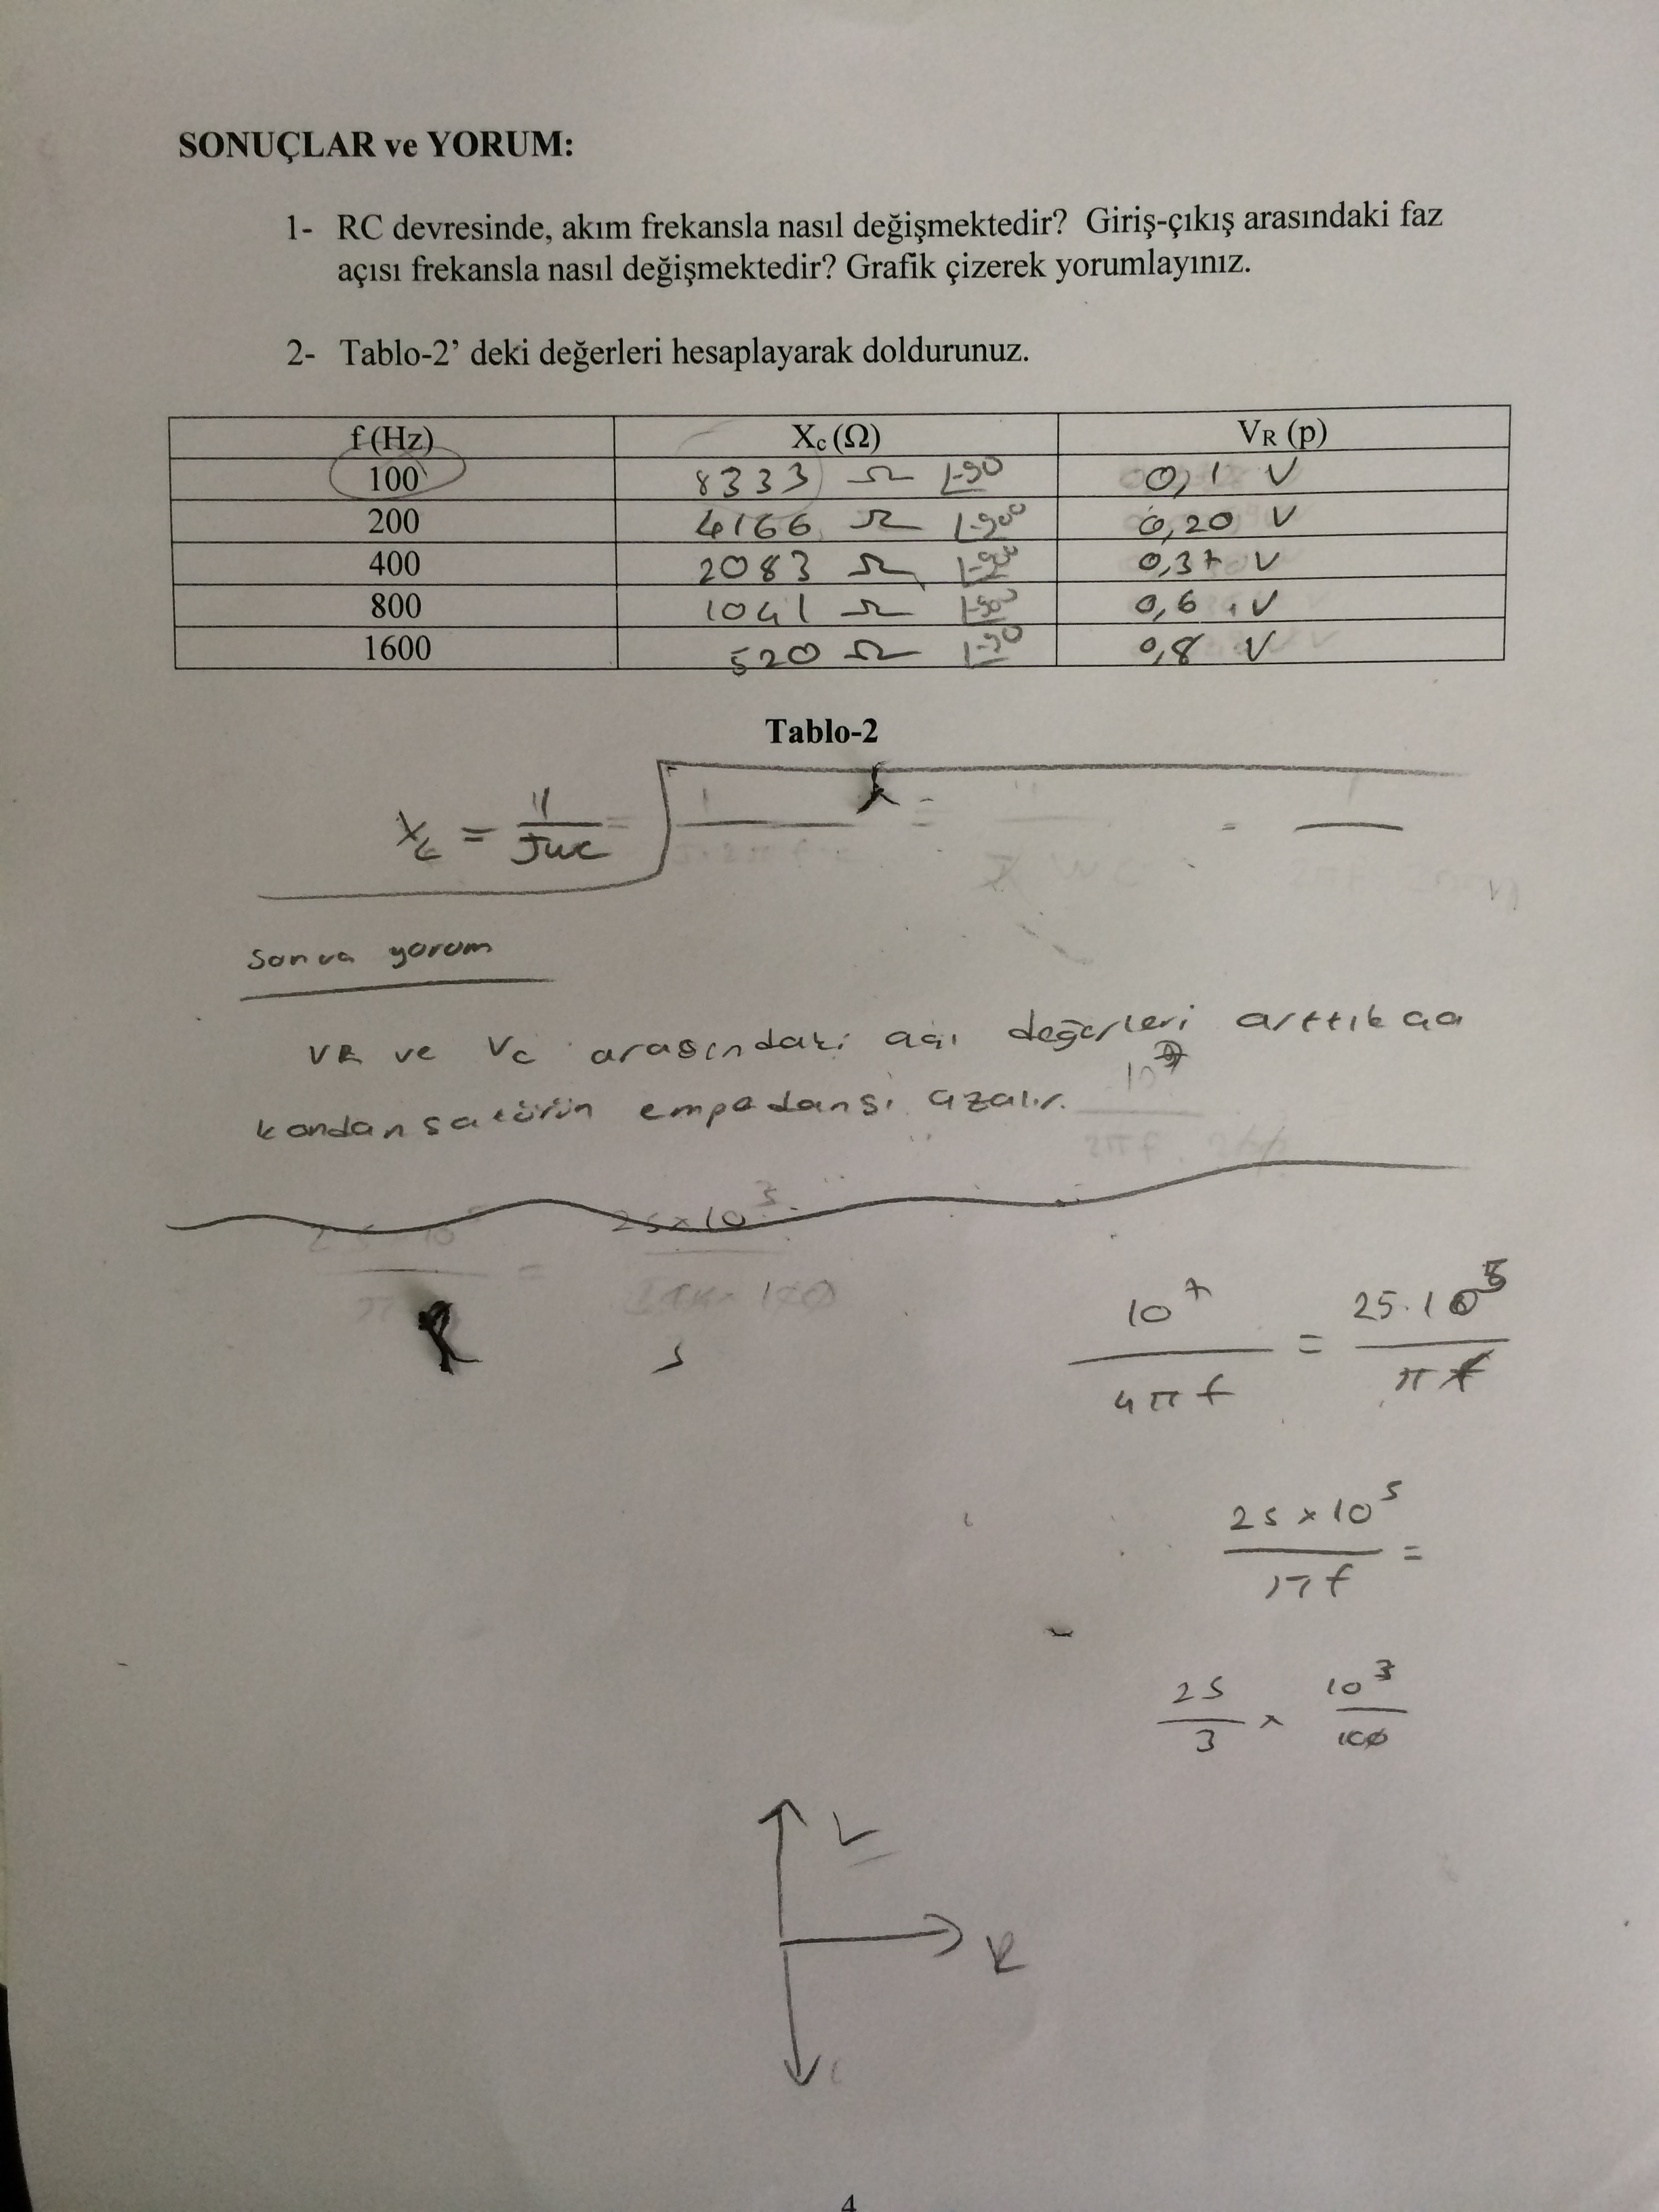 SONUÇLAR ve YORUM:
1- RC devresinde, akım frekansla nasıl değişmektedir? Giriş-çıkış arasındaki faz
açısı frekansla nasıl değişmektedir? Grafik çizerek yorumlayınız.
2- Tablo-2’ deki değerleri hesaplayarak doldurunuz.
f (Hz) Xc (Ω) VR (p)
100 8333 Ω ∠-90 0,1 V
200 4166 Ω ∠-90° 0,20 V
400 2083 Ω ∠-90 0,37 V
800 1041 Ω ∠-90 0,6 V
1600 520 Ω ∠-90 0,8 V
Tablo-2
Xc = 1/Jwc
yorum
VR ve Vc arasındaki açı değerleri arttıkça
kondansatörün empedansı azalır.
25x10³
10⁷/4πf = 25.10⁵/πf
25x10⁵/πf =
25/3 x 10³/100
L
R
4